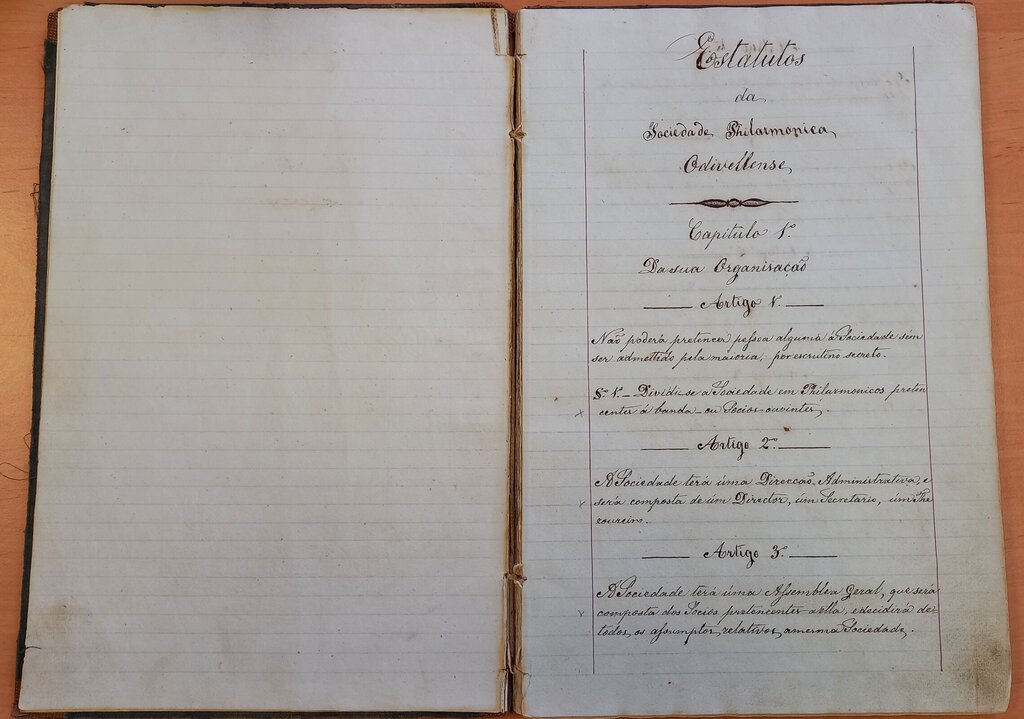 Estatutos
da
Sociedade Philarmonica
Odivellense
Capitulo 1º
Da sua Organisação
Artigo 1º
Não poderá pretencer pessoa alguma á Sociedade sem
ser admettido pela maioria, por escrutino secreto.
§º 1º Dividi-se a Sociedade em Philarmonicos preten
centes á banda ou Socios ouvintes.
Artigo 2º
A Sociedade terá uma Direcção Administrativa, e
será composta de um Director, um Secretario, um The
zoureiro.
Artigo 3º
A Sociedade terá uma Assemblea Geral, que será
composta dos Socios pretencentes a ella, e decidirá de
todos os assumptos relativos a mesma Sociedade.